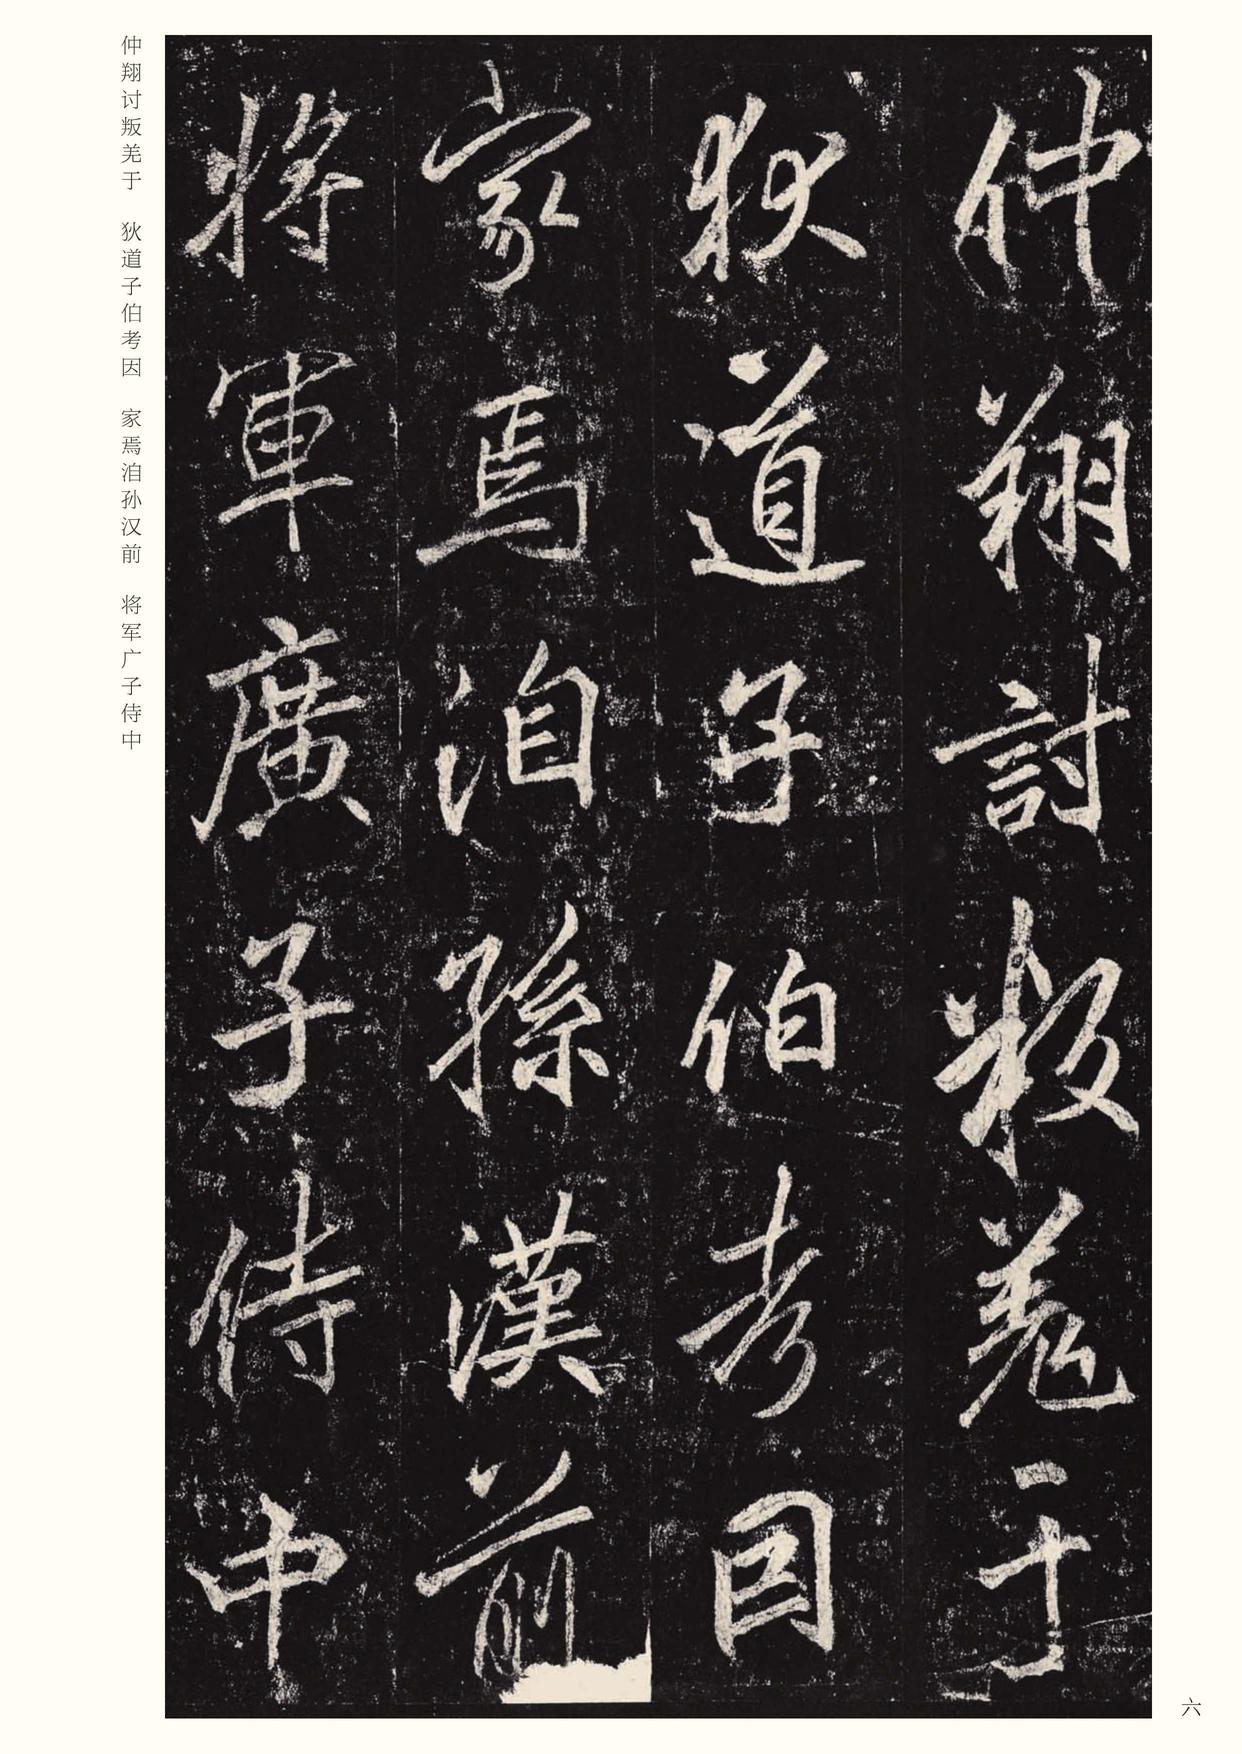 仲翔討叛羌于
狄道子伯考因
家焉洎孫漢前
將軍廣子侍中
仲翔讨叛羌于 狄道子伯考因 家焉洎孙汉前 将军广子侍中
六